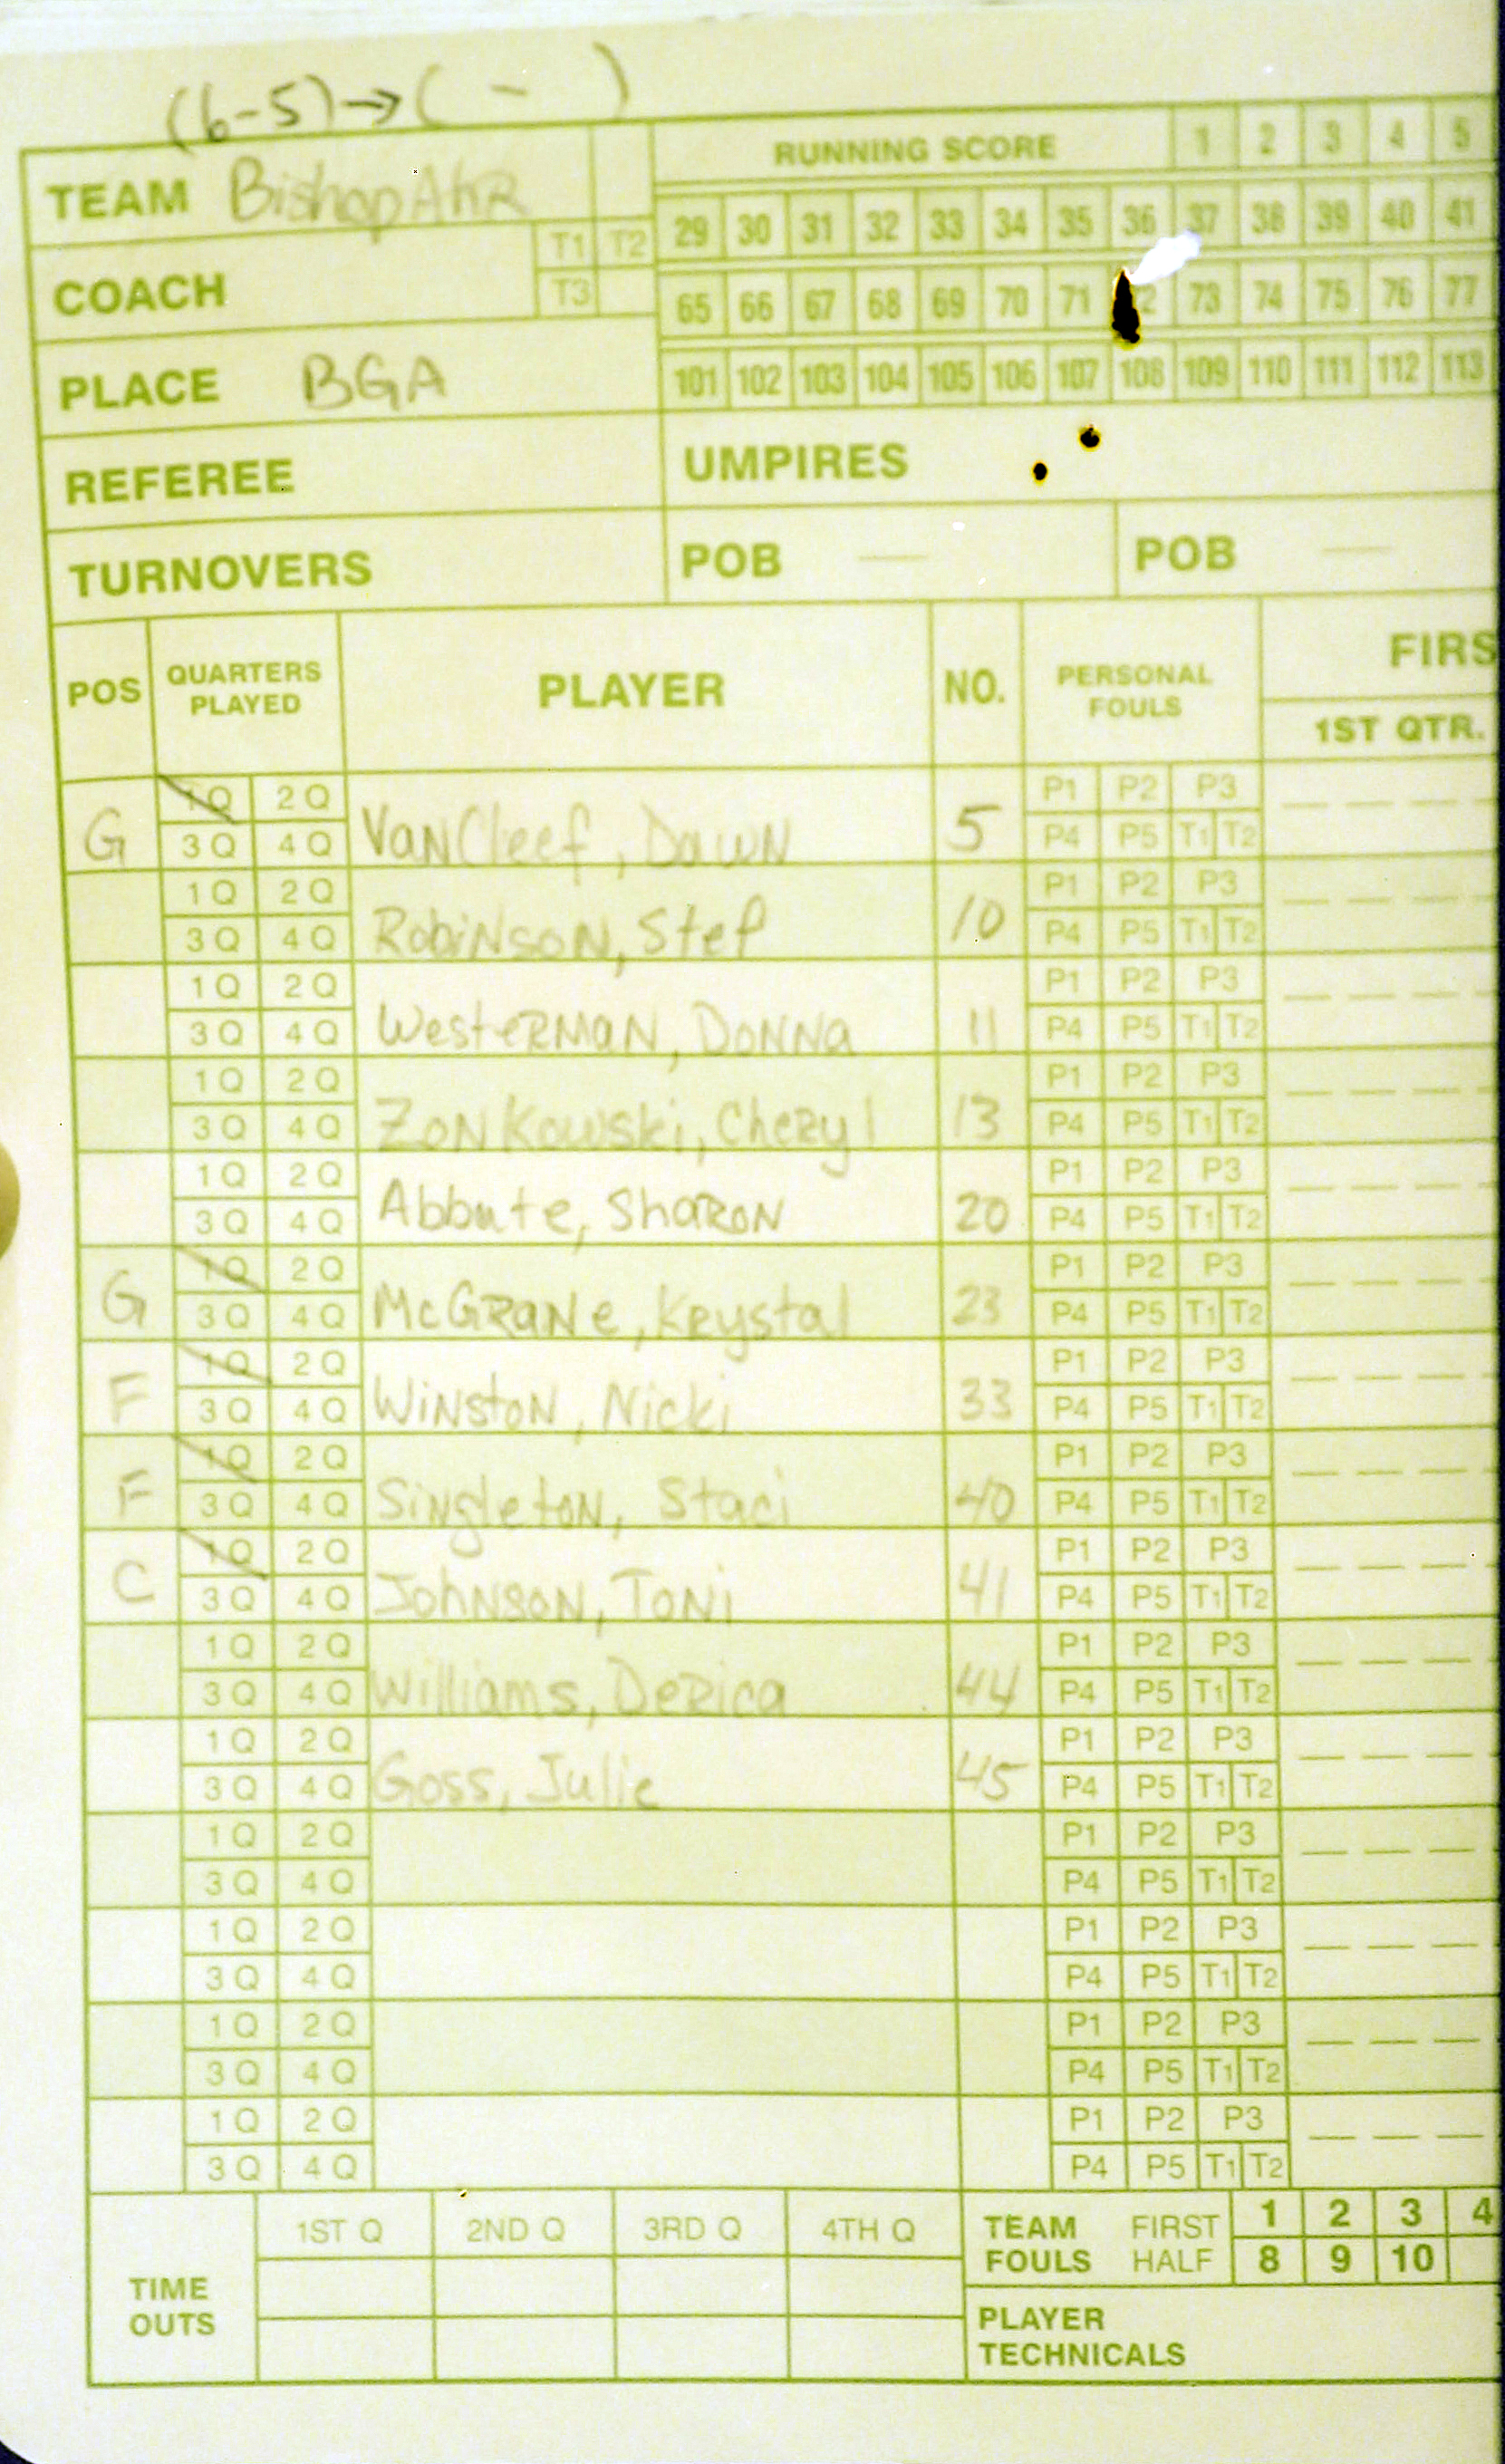 (6-5)→( - )
TEAM Bishop AHR
RUNNING SCORE 1 2 3 4 5
T1 T2 29 30 31 32 33 34 35 36 37 38 39 40 41
COACH T3 65 66 67 68 69 70 71 72 73 74 75 76 77
PLACE BGA 101 102 103 104 105 106 107 108 109 110 111 112 113
REFEREE UMPIRES
TURNOVERS POB — POB —
POS QUARTERS PLAYED PLAYER NO. PERSONAL FOULS FIRS
1ST QTR.
1Q 2Q P1 P2 P3
G 3Q 4Q VanCleef, Dawn 5 P4 P5 T1 T2
1Q 2Q P1 P2 P3
3Q 4Q Robinson, Stef 10 P4 P5 T1 T2
1Q 2Q P1 P2 P3
3Q 4Q Westerman, Donna 11 P4 P5 T1 T2
1Q 2Q P1 P2 P3
3Q 4Q Zonkowski, Cheryl 13 P4 P5 T1 T2
1Q 2Q P1 P2 P3
3Q 4Q Abbate, Sharon 20 P4 P5 T1 T2
1Q 2Q P1 P2 P3
G 3Q 4Q McGrane, Krystal 23 P4 P5 T1 T2
1Q 2Q P1 P2 P3
F 3Q 4Q Winston, Nicki 33 P4 P5 T1 T2
1Q 2Q P1 P2 P3
F 3Q 4Q Singleton, Staci 40 P4 P5 T1 T2
1Q 2Q P1 P2 P3
C 3Q 4Q Johnson, Toni 41 P4 P5 T1 T2
1Q 2Q P1 P2 P3
3Q 4Q Williams, Derica 44 P4 P5 T1 T2
1Q 2Q P1 P2 P3
3Q 4Q Goss, Julie 45 P4 P5 T1 T2
1Q 2Q P1 P2 P3
3Q 4Q P4 P5 T1 T2
1Q 2Q P1 P2 P3
3Q 4Q P4 P5 T1 T2
1Q 2Q P1 P2 P3
3Q 4Q P4 P5 T1 T2
1Q 2Q P1 P2 P3
3Q 4Q P4 P5 T1 T2
TIME OUTS 1ST Q 2ND Q 3RD Q 4TH Q
TEAM FOULS FIRST HALF 1 2 3 4
8 9 10
PLAYER TECHNICALS